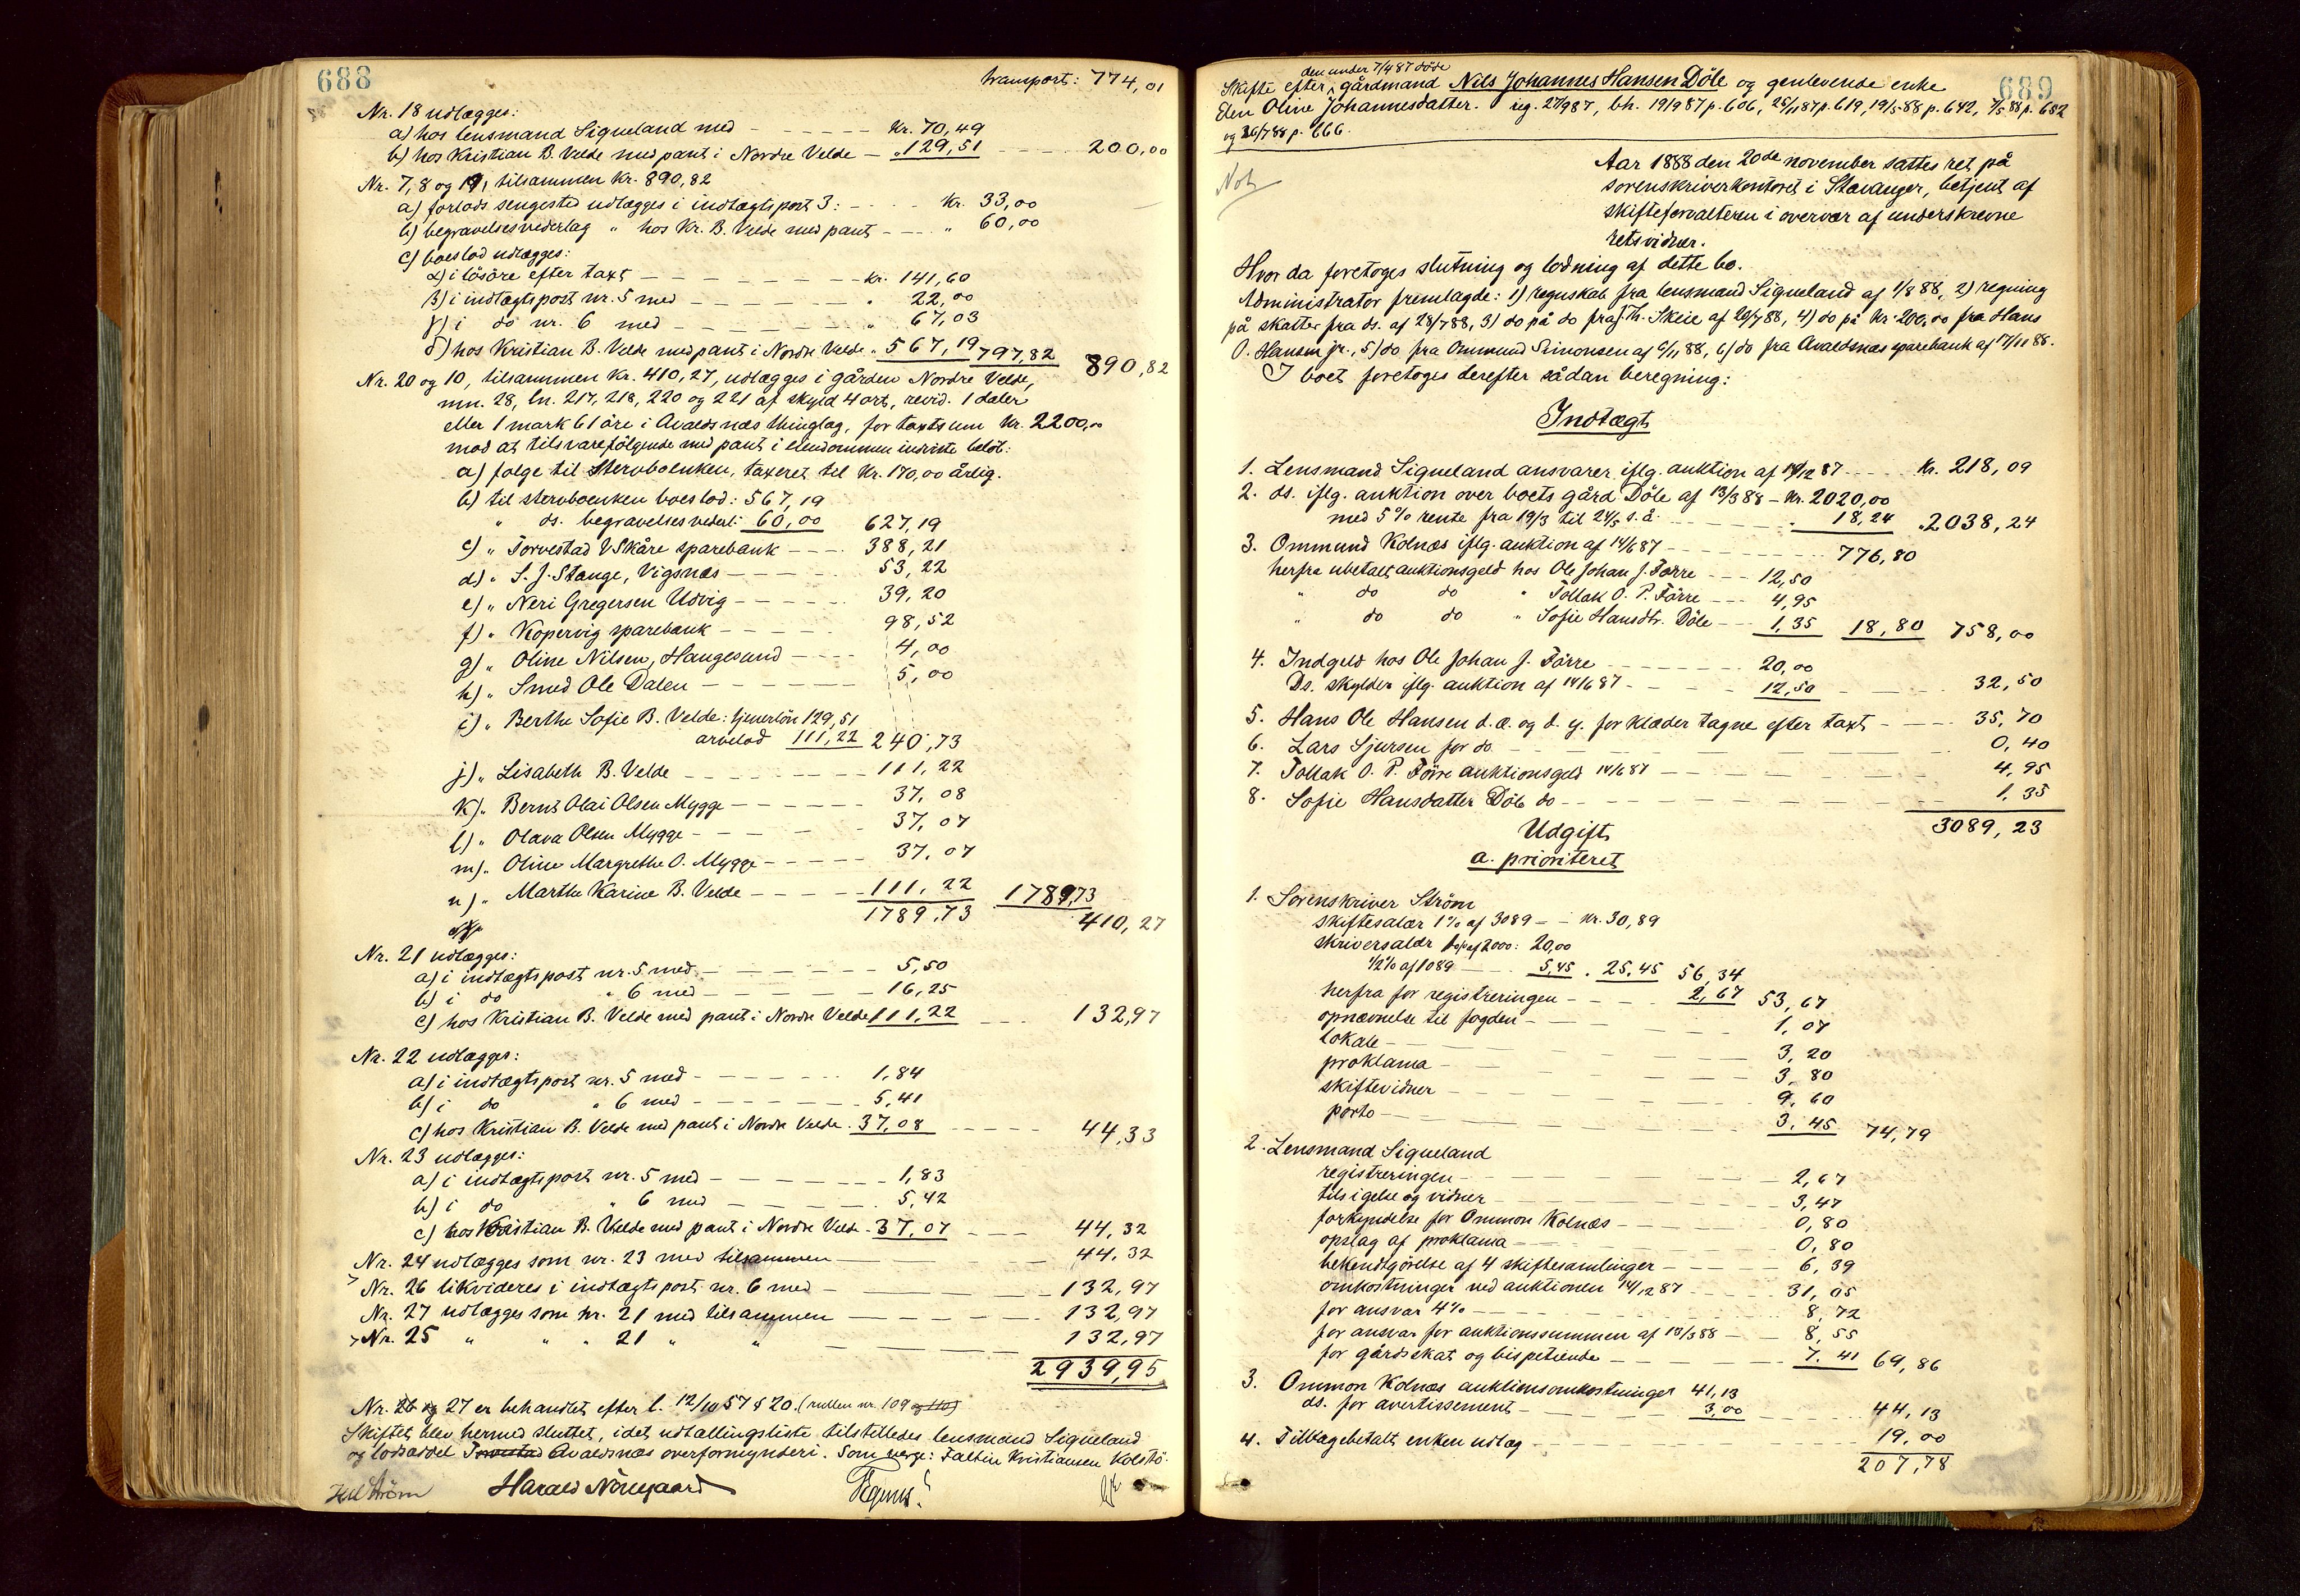 688
transport: 774,01
Nr. 18 udlægges:
a) hos lensmand Siqueland med - - - - - - kr. 70,49
b) hos Kristian B. Velde med pant i Nordre Velde - " 129,51 - - - - 200,00
Nr. 7, 8 og 19, tilsammen kr. 890,82
a) forlods sengested udlægges i indtægtspost 3: - - - - kr. 33,00
b) begravelsesvederlag " hos Kr. B. Velde med pant - - - " 60,00
c) boeslod udlægges:
α) i lösöre efter taxt - - - - - - kr. 141,60
β) i indtægtspost nr. 5 med - - - - - " 22,00
γ) i do nr. 6 med - - - - - " 67,03
δ) hos Kristian B. Velde med pant i Nordre Velde " 567,19 797,82 890,82
Nr. 20 og 10, tilsammen kr. 410,27, udlægges i gården Nordre Velde,
mn. 28, ln. 217, 218, 220 og 221 af skyld 4 ort, revid. 1 daler
eller 1 mark 61 öre i Avaldsnæs thinglag, for taxtsum kr. 2200,00
mod at tilsvare fölgende med pant i eiendommen indriste belöb:
a) folge til stervboenken, taxeret til kr. 170,00 årlig.
b) til stervboenken boeslod: 567,19
" ds. begravelsesvederl: 60,00 627,19
c) " Torvestad & Skåre sparebank - - - 388,21
d) " S. J. Stange, Vigsnæs - - - - 53,22
e) " Neri Gregersen Udvig - - - - - 39,20
f) " Kopervig sparebank - - - - - 98,52
g) " Oline Nilsen, Haugesund - - - 4,00
h) " Smed Ole Dalen - - - - - 5,00
i) " Berthe Sofie B. Velde: tjenerlön 129,51
arvelod 111,22 240,73
j) " Lisabeth B. Velde - - - - - 111,22
k) " Bernt Olai Olsen Mygge - - - - - 37,08
l) " Olava Olsen Mygge - - - - - 37,07
m) " Oline Margrethe O. Mygge - - - - - 37,07
n) " Marthe Karine B. Velde - - - - 111,22 1789,73
1789,73 410,27
Nr. 21 udlægges:
a) i indtægtspost nr. 5 med - - - - - - 5,50
b) i do " 6 med - - - - - 16,25
c) hos Kristian B. Velde med pant i Nordre Velde 111,22 - - - 132,97
Nr. 22 udlægges:
a) i indtægtspost nr. 5 med - - - - - - 1,84
b) i do " 6 med - - - - - - 5,41
c) hos Kristian B. Velde med pant i Nordre Velde. 37,08 - - - - - 44,33
Nr. 23 udlægges:
a) i indtægtspost nr. 5 med - - - - - - 1,83
b) i do " 6 med - - - - - 5,42
c) hos Kristian B. Velde med pant i Nordre Velde. 37,07 - - - 44,32
Nr. 24 udlægges som nr. 23 med tilsammen - - - - - 44,32
Nr. 26 likvideres i indtægtspost nr. 6 med - - - - - 132,97
Nr. 27 udlægges som nr. 21 med tilsammen - - - - - 132,97
Nr. 25 " " " 21 " " - - - - - 132,97
2939,95
Nr. 26 og 27 er behandlet efter l. 12/10 57 § 20. (rullen nr. 109 og 110)
Skiftet blev hermed sluttet, idet udtallingsliste tilstilledes lensmand Siqueland
og lodseddel Torvestad Avaldsnæs overformynderi. Som verge: Faltin Kristiansen Kolstö.
Harald Nörregaard
689
den under 7/4 87 döde
Skifte efter gårdmand Nils Johannes Hansen Döle og gjenlevende enke
Elen Oline Johannesdatter. reg. 27/9 87, bh. 19/9 87 p. 606, 25/11 87 p. 619, 19/3 88 p. 642, 7/5 88 p. 652
og 26/7 88 p. 666.
Not
Aar 1888 den 20de november sattes ret på
sorenskriverkontoret i Stavanger, betjent af
skifteforvalteren i overvær af underskrevne
retsvidner.
Hvor da foretoges slutning og lodning af dette bo.
Administrator fremlagde: 1) regnskab fra lensmand Siqueland af 1/8 88, 2) regning
på skatter fra ds. af 28/7 88, 3) do på do fra J. Th. Skeie af 20/7 88, 4) do på kr. 200,00 fra Hans
O. Hansen jr., 5) do fra Ommund Simonsen af 6/11 88, 6) do fra Avaldsnæs sparebank af 17/11 88.
I boet foretoges derefter sådan beregning:
Indtægt
1. Lensmand Siqueland ansvarer iflg. auktion af 14/12 87 - - - - kr. 218,09
2. ds. iflg. auktion over boets gård Döle af 13/3 88 - kr. 2020,00
med 5 % rente fra 19/3 til 24/5 s. å. - - - - " 18,24 " 2038,24
3. Ommund Kolnæs iflg. auktion af 14/6 87 - - - - - 776,80
herfra ubetalt auktionsgeld hos Ole Johan J. Förre - - - 12,50
" do do " Tollak O. P. Förre - - - 4,95
" do do " Sofie Hansdtr. Döle - - - 1,35 18,80 758,00
4. Indgeld hos Ole Johan J. Förre - - - - - - 20,00
Ds. skylder iflg. auktion af 14/6 87 - - - - - 12,50 - - - - 32,50
5. Hans Ole Hansen d. æ. og d. y. for klæder tagne efter taxt - - - - 35,70
6. Lars Sjursen for do - - - - - 0,40
7. Tollak O. P. Förre auktionsgeld 14/6 87 - - - - - 4,95
8. Sofie Hansdatter Döle do - - - - - 1,35
3089,23
Udgift
a. prioriteret
1. Sorenskriver Ström
skiftesalær 1 % af 3089 - - kr. 30,89
skriversalær 1 % af 2000: 20,00
1/2 % af 1089 - - - 5,45 " 25,45 56,34
herfra for registreringen - - - - 2,67 53,67
opnævnelse til fogden - - - - - 1,07
lokale - - - - - 3,20
proklama - - - - - 3,80
skiftevidner - - - - - 9,60
porto - - - - - 3,45 74,79
2. Lensmand Siqueland
registreringen - - - - - 2,67
tilsigelse og vidner - - - - - 3,47
forkyndelse for Ommon Kolnæs - - - - - 0,80
opslag af proklama - - - - - 0,80
bekendtgörelse af 4 skiftesamlinger - - - - 6,39
omkostninger ved auktionen 14/12 87 - - - - 31,05
for ansvar 4 % - - - - - 8,72
for ansvar for auktionssummen af 13/3 88 - - 8,55
for gårdsskat og bispetiende - - - - - 7,41 69,86
3. Ommon Kolnæs auktionsomkostninger 41,13
ds. for avertissement - - - - 3,00 - - - - 44,13
4. Tilbagebetalt enken udlæg - - - - - 19,00
207,78